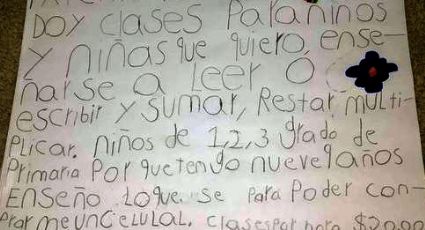 DOY clases Para niños
y niñas que quiero, ense-
ñarse a Leer O
escribir y sumar, Restar, multi-
Plicar. niños de 1,2,3 grado de
Primaria Por que tengo nueve años
ENSEÑO Lo que se Para Poder con-
Prar me UN CeLULAL. clases Por hora $20.00